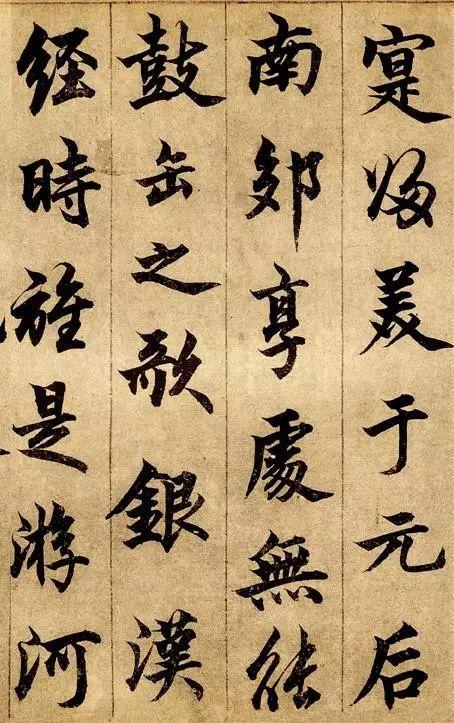 寔歸美于元后
南郊享處無能
鼓缶之歌銀漢
経時旌是游河